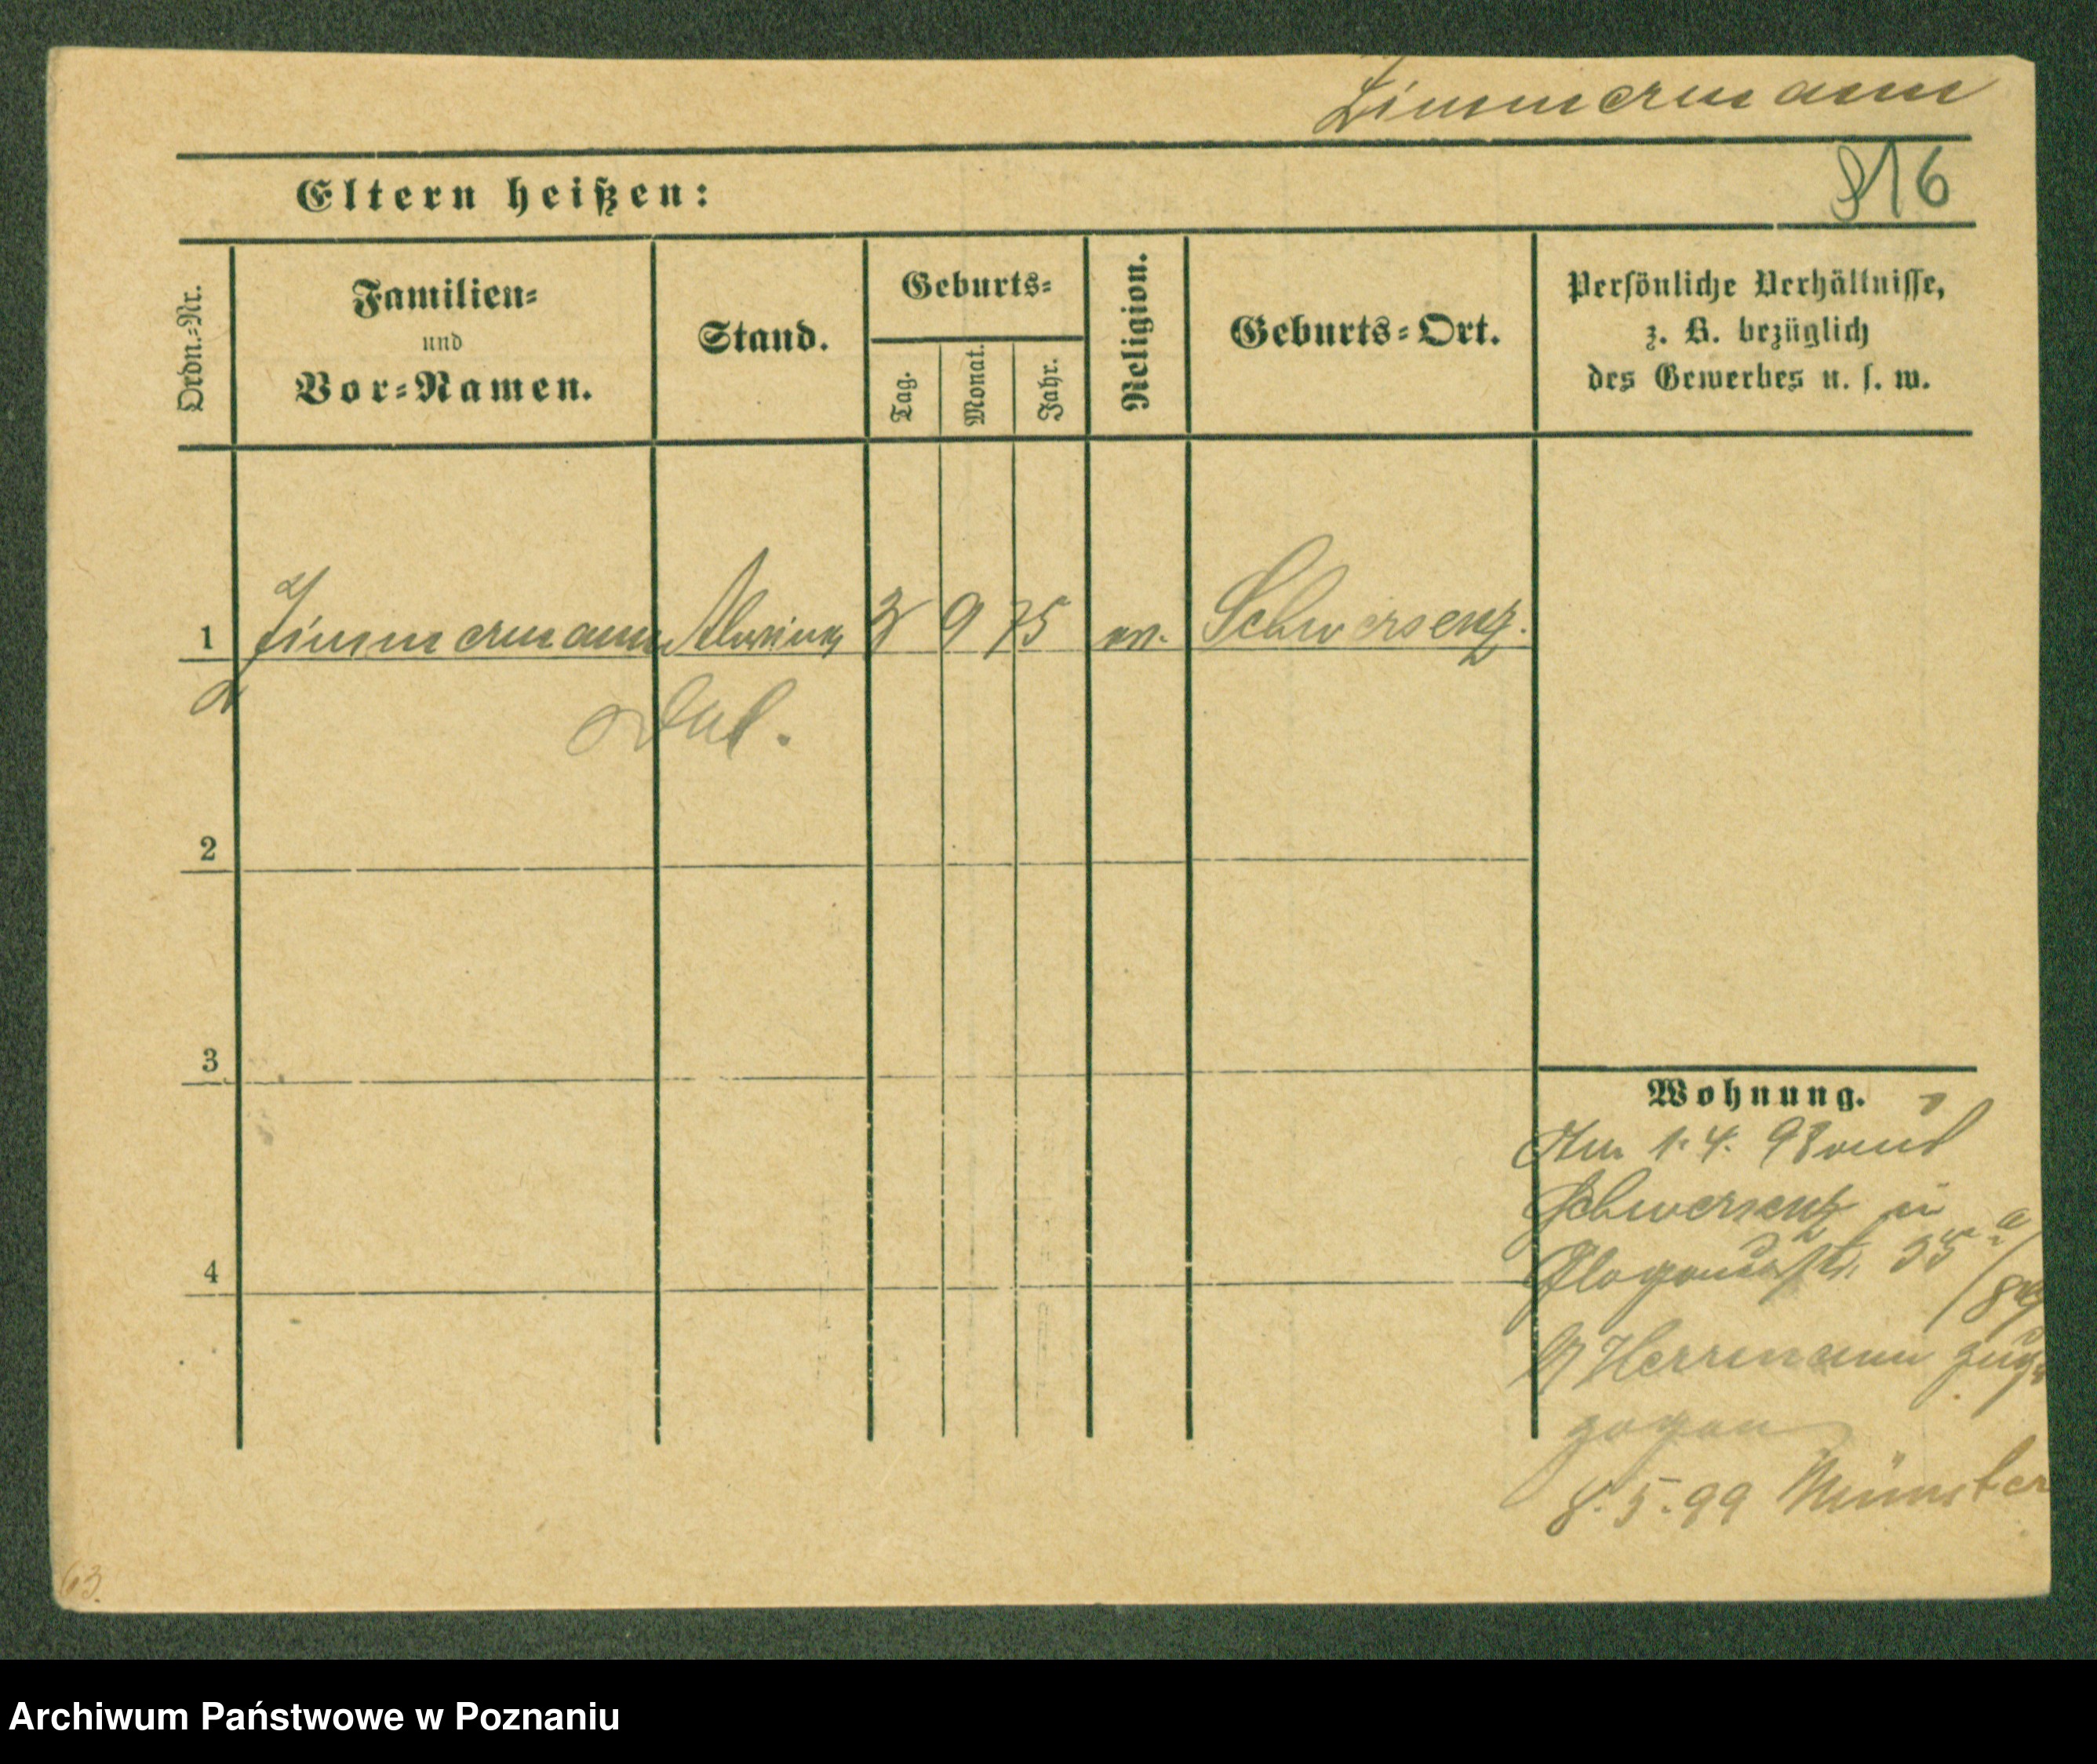 Zimmermann
Eltern heißen:
816
Ordn.=Nr.
Familien=
und
Vor=Namen.
Stand.
Geburts=
Tag.
Monat.
Jahr.
Religion.
Geburts=Ort.
Persönliche Verhältnisse,
z. B. bezüglich
des Gewerbes u. s. w.
1 Zimmermann 3 9 75 ev. Schwersenz.
2
3
4
Wohnung.
1. 4. 98
Schwersenz in
35
Herrmann zuge=
zogen
8. 5. 99 Münster
63.
Archiwum Państwowe w Poznaniu